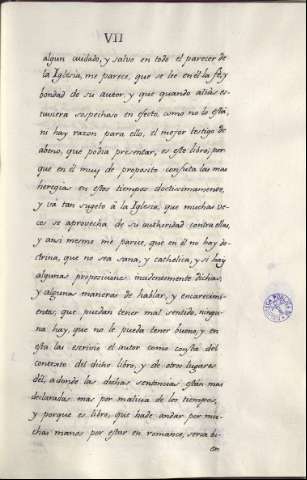 VII
algun cuidado, y salvo en todo el parecer de
la Iglesia, me parece, que se lee en él la fé, y
bondad de su autor y que quando alias es-
tuviera sospechoso en efecto, como no lo está,
ni hay razon para ello, el mejor testigo de
abono, que podia presentar, es este libro, por
que en él muy de proposito confuta las mas
heregias en estos tiempos doctissimamente,
y vá tan sugeto á la Iglesia, que muchas ve-
ces se aprovecha de su authoridad contra ellas,
y ansi mesmo me parece, que en él no hay do-
ctrina, que no sea sana, y catholica, y si hay
algunas proposiciones incidentemente dichas,
y algunas maneras de hablar, y encarecimi-
entos, que puedan tener mal sentido, ningu-
na hay, que no le pueda tener bueno, y en
este las escrivio el autor como consta del
contexto del dicho libro, y de otros lugares
dél, adonde las dichas sentencias están mas
declaradas: mas por malicia de los tiempos,
y porque es libro, que hade andar por mu-
chas manos por estar en romance, seria bi-
en